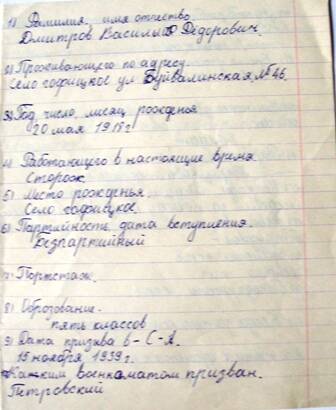 1) Фамилия, имя отчество.
Дмитров Василий Фёдорович.
2) Проживающего по адресу
село Гофицкое ул. №46.
3) Год, число, месяц рожденья
20 мая 1918 г
4) Работающего в настоящие время
Сторож
5) Место рожденья.
Село Гофицкое.
6) Партийность, дата вступления.
безпартийный
7) Портстаж.
8) Оброзование.
пять классов
9) Дата призыва в-С-А.
15 ноября 1939 г.
Каким военкаматом призван.
Петровский